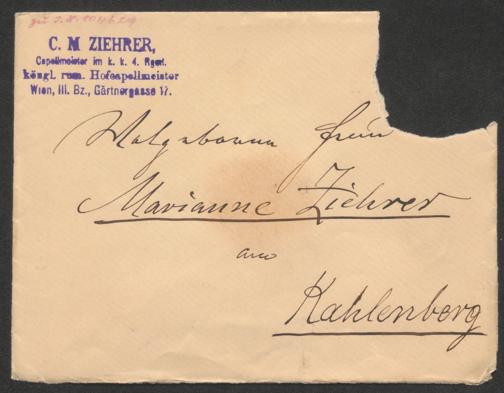 C. M ZIEHRER,
Capellmeister im k. k. 4. Rgmt.
köngl. rum. Hofcapellmeister
Wien, III. Bz., Gärtnergasse 17.
Wolgeborne Frau
Marianne Ziehrer
am
Kahlenberg